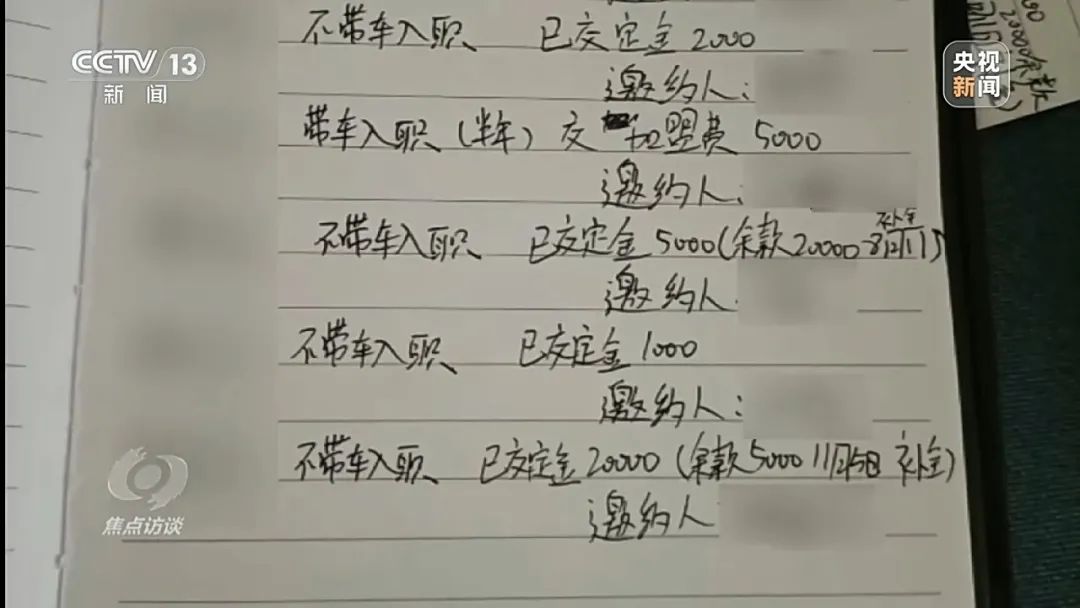 CCTV 13
新闻
央视
新闻
不带车入职 已交定金 2000
邀约人:
带车入职(半年) 交 加盟费 5000
邀约人:
不带车入职 已交定金 5000(余款20000 补金
邀约人
不带车入职 已交定金 1000
邀约人:
不带车入职 已交定金 20000 (余款5000 11月5日 补金)
邀约人
焦点访谈
20000余款